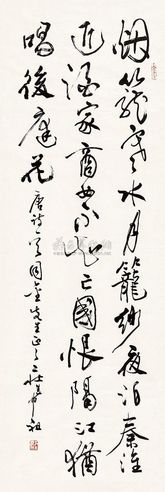 烟籠寒水月籠紗夜泊秦淮
近酒家商女不知亡國恨隔江猶
唱後庭花
唐詩一首